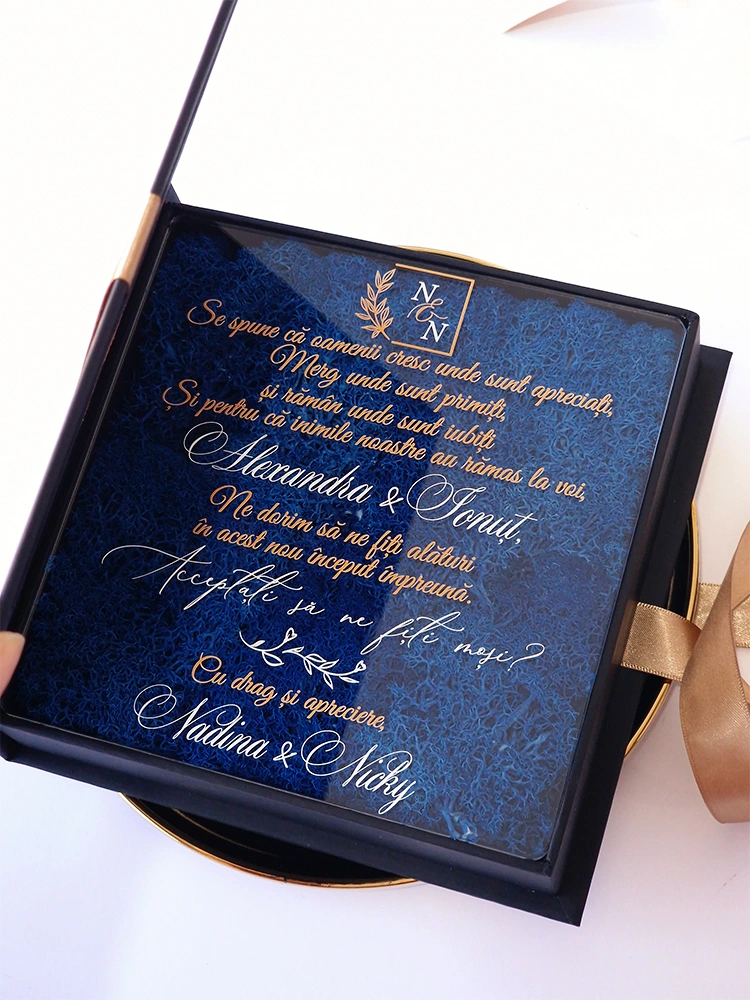 N
&
N
Se spune că oamenii cresc unde sunt apreciați,
Merg unde sunt primiți,
și rămân unde sunt iubiți
Și pentru că inimile noastre au rămas la voi,
Alexandra & Ionuț,
Ne dorim să ne fiți alături
în acest nou început împreună.
Acceptați să ne fiți moși?
Cu drag și apreciere,
Nadina & Nicky